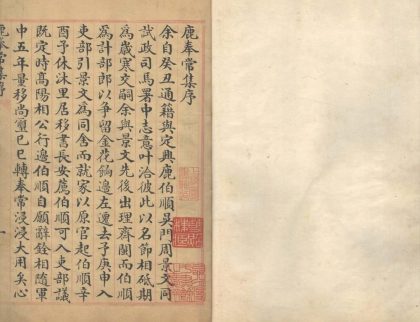 鹿奉常集序
余自癸丑通籍與定興鹿伯順吳門周景文同
試政司馬署中志意叶洽彼此以名節相砥期
為歲寒交嗣余與景文先後出理齊閩而伯順
為計部郎以爭留金花餉邊左遷去予庚申入
吏部引景文為同舍而就家以原官起伯順辛
酉予休沐里居移書長安薦伯順可入吏部議
既定時高陽相公行邊伯順自願辭銓相隨軍
中五年量移尚璽巳巳轉奉常浸浸大用矣心
鹿奉常集序
一